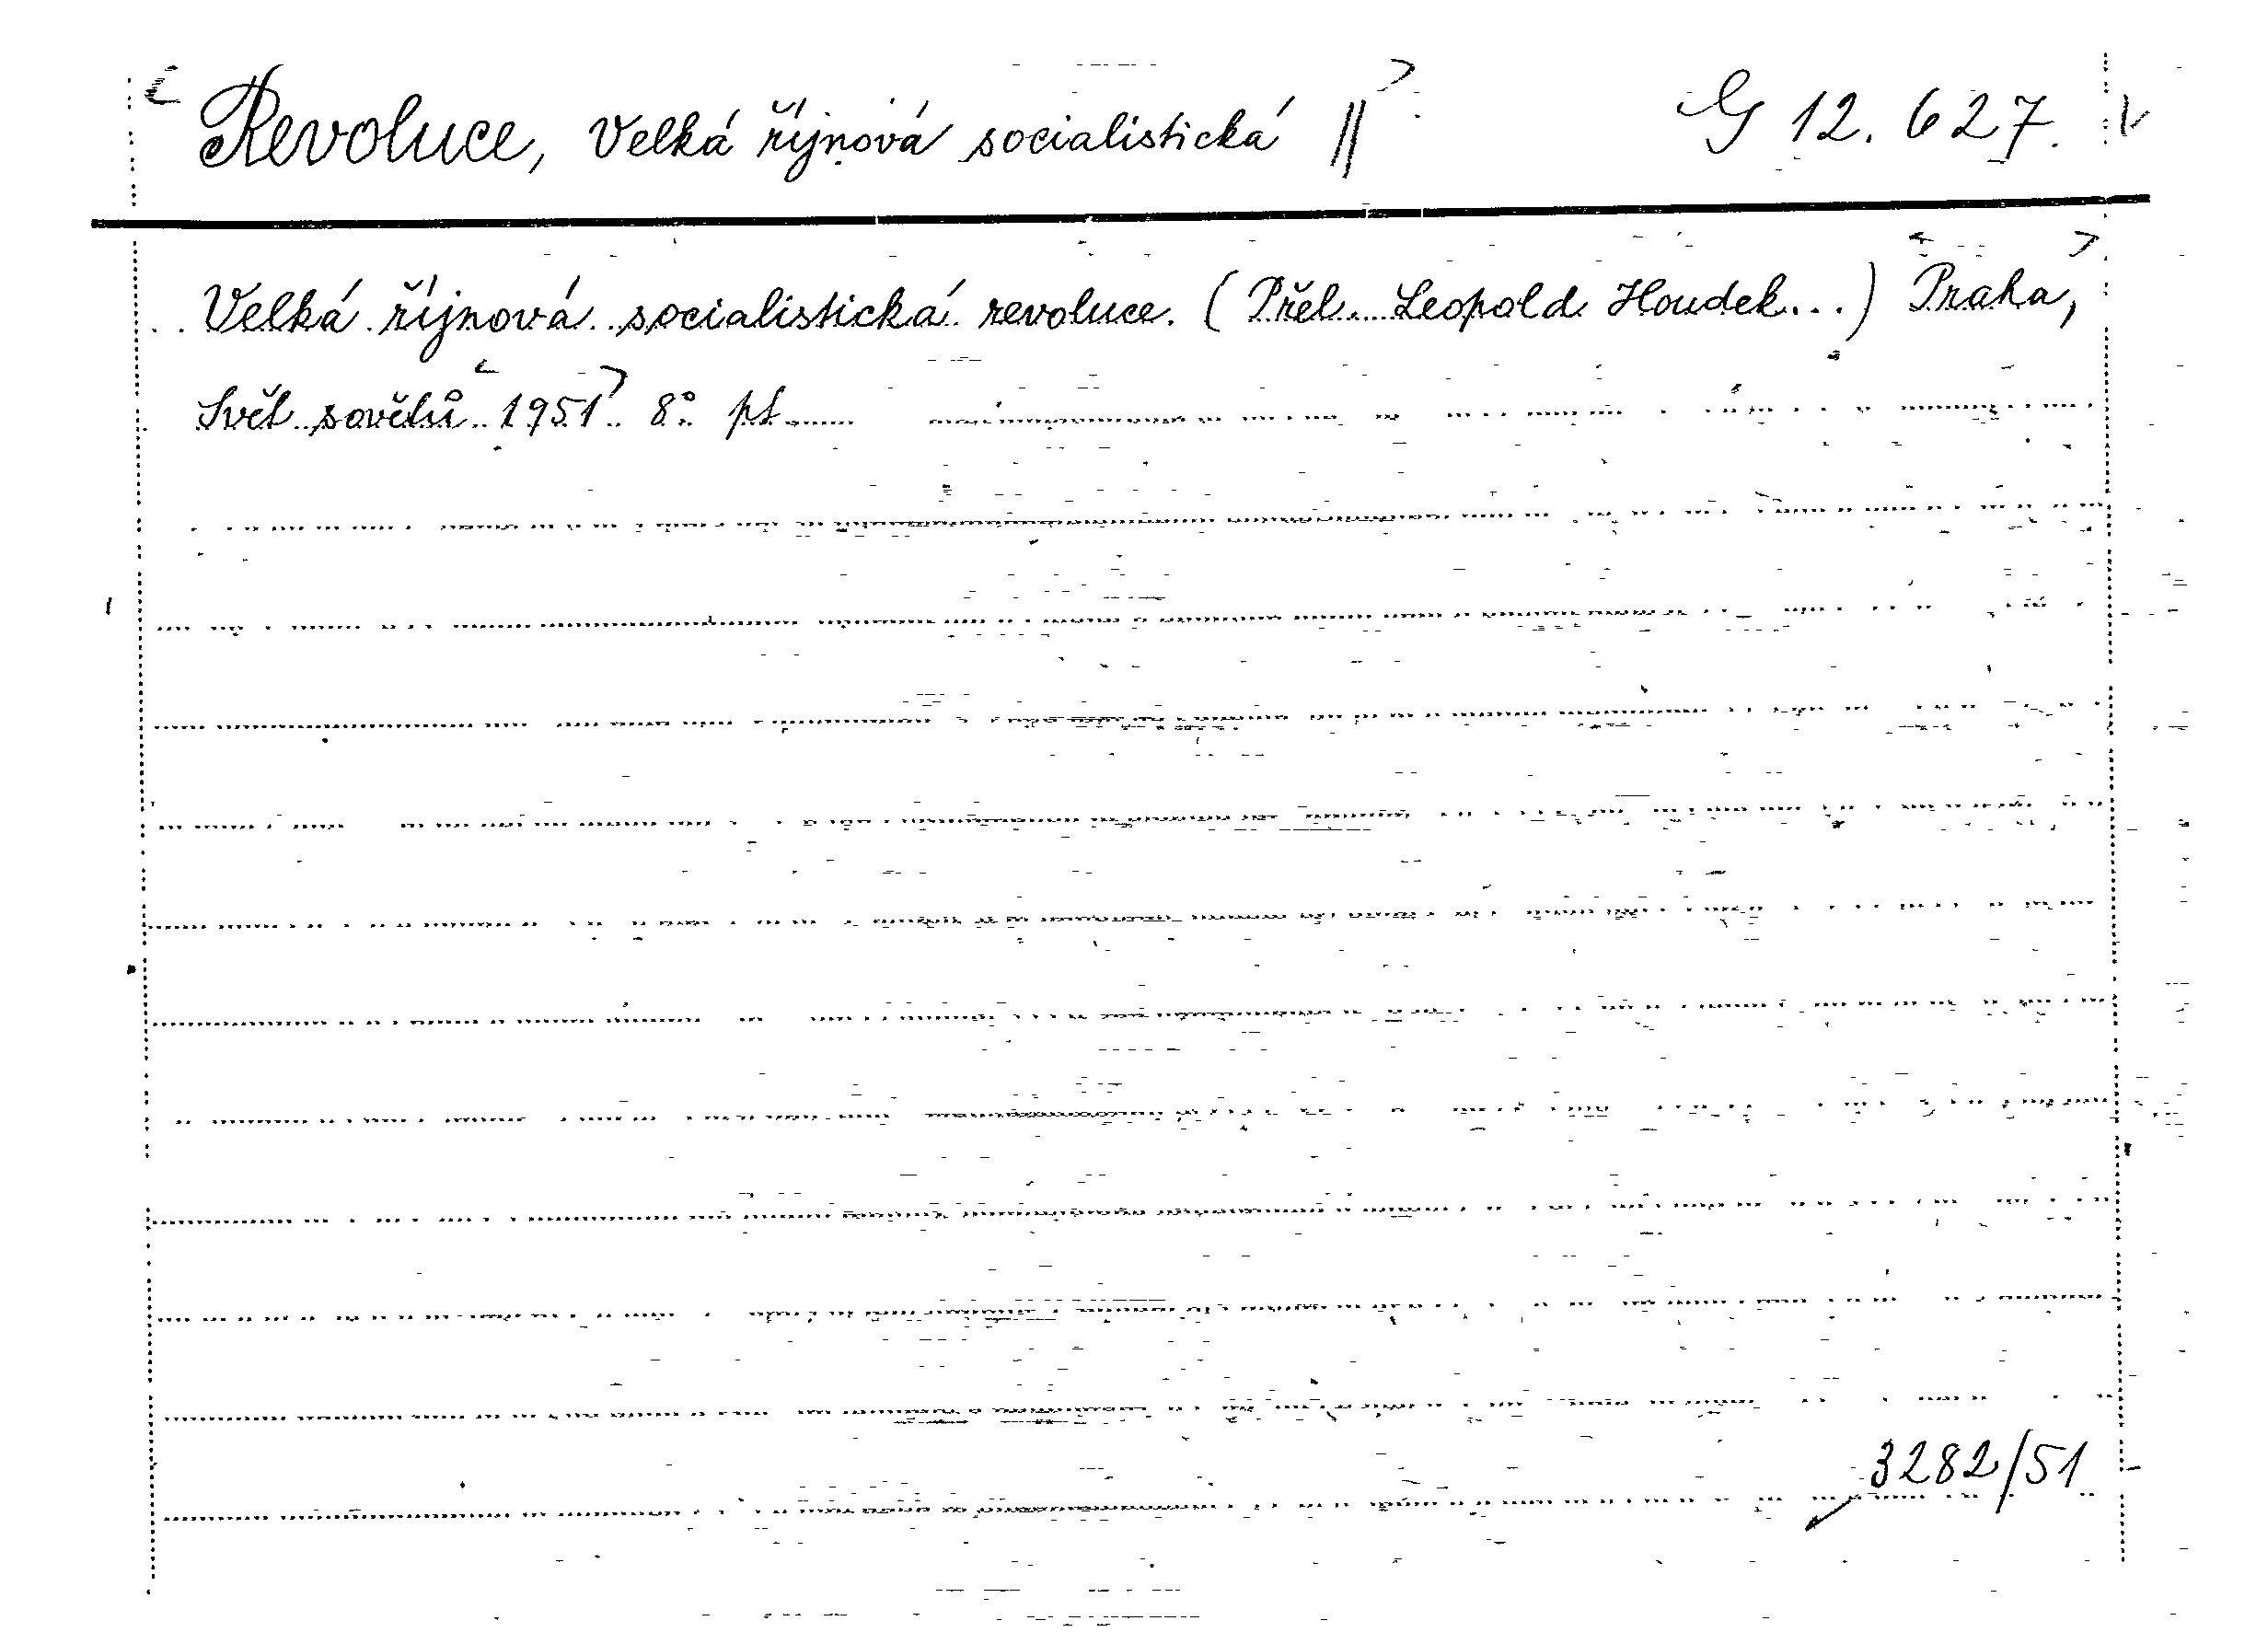 < Revoluce, Velká říjnová socialistická || > G 12.627.
Velká říjnová socialistická revoluce. (Přel. Leopold Houdek...) < Praha, >
Svět sovětů < 1951 > 8° pt
3282/51